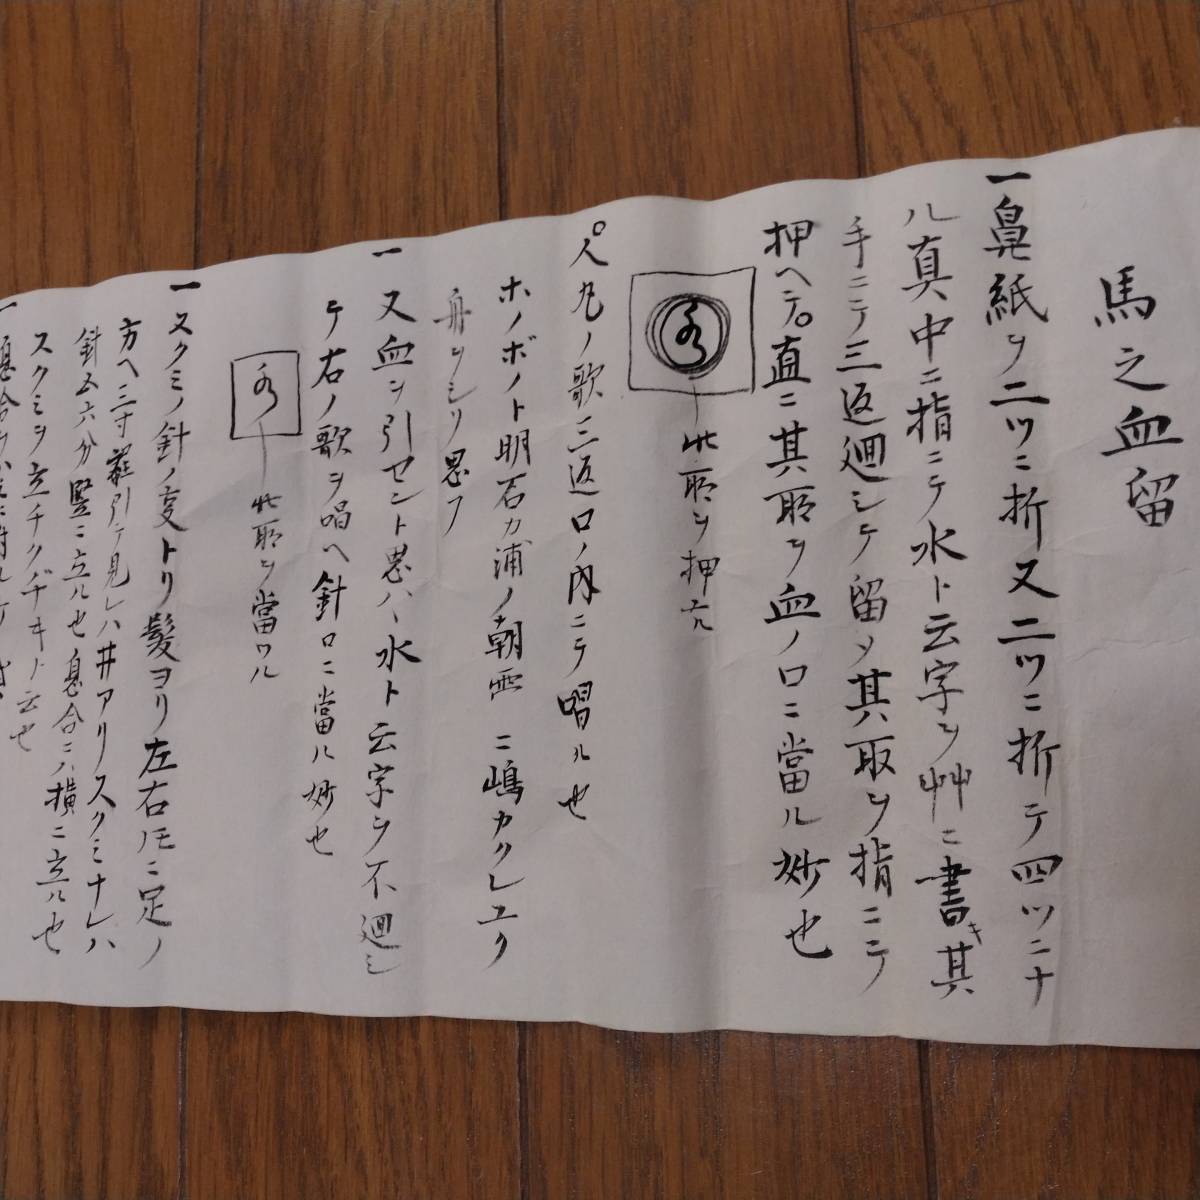 馬之血留
一鼻紙ヲ二ツニ折又二ツニ折テ四ツニナ
ル真中ニ指ニテ水ト云字ヲ艸ニ書キ其
手ニテ三返廻シテ留メ其取ヲ指ニテ
押ヘテ。直ニ其所ヲ血ノ口ニ當ル妙也
水
此所ヲ押エル
。人丸ノ歌三返口ノ内ニテ唱ル也
ホノボノト明石カ浦ノ朝雰ニ嶋カクレユク
舟ヲシソ思フ
一又血ヲ引セント思ハヽ水ト云字ヲ不廻シ
テ右ノ歌ヲ唱ヘ針口ニ當ル妙也
水
此所ヲ當ワル
一スクミノ針ノ変トリ髪ヨリ左右ノモニ定ノ
方ヘ三寸 引テ見レハ井アリスクミナレハ
針五六分竪ニ立ル也息合ニハ横ニ立ル也
スクミヲ立チクヂキト云也
一息合